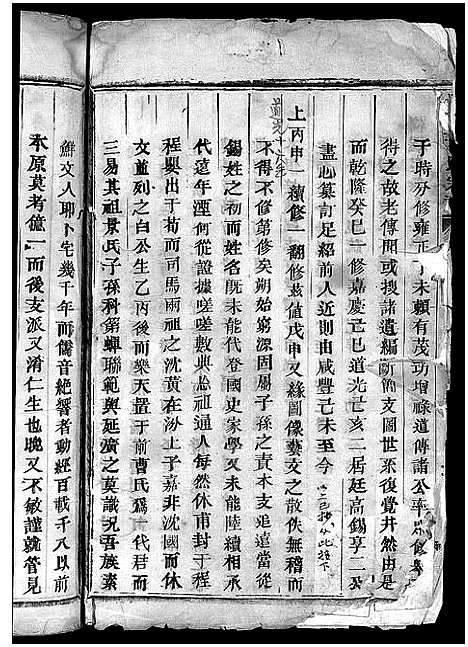 于時分修雍正丁未賴有茂功增祿道傳諸公率
得之故老傳聞或搜諸遺編斷簡支圖世系復覺井然由是
而乾隆癸巳一修嘉慶己巳道光己亥二居廷高錫享二公
盡心纂訂足紹前人近則由咸豐己未至今
上丙申一續修一翻修茲值戊申又緣圖像藝文之散佚無稽而
不得不修第修矣朔始窮源固屬子孫之責木支追遠當念
錫姓之初而姓名既未能代登國史家學又未能陸續相承
代遠年湮何從證據嗟嗟數典忘祖通人每然休甫封于程
程嬰出于荀而司馬兩祖之沈黃在汾上子嘉非沈國而休
文並列之白公生乙丙後而樂天置于前曹氏爲六代君而
三易其祖景氏子孫科第蟬聯範與延廣之莫識况吾族素
鮮文人聊卜宅幾千年而儒音絶響者動經百載千八以前
木原莫考億一而後支派又淆仁生也晚又不敏謹就管見